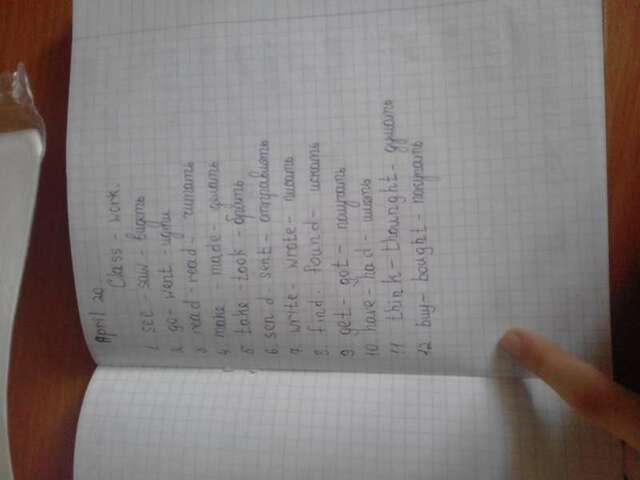 April 20.
Class - work.
1 see - saw - видеть
2 go - went - идти
3 read - read - читать
4 make - made - делать
5 take took - брать
6 send sent - отправлять
7 write - wrote - писать
8 find. found - искать
9 get - got - получать
10 have - had - иметь
11 think - thounght - думать
12 buy - bought - покупать